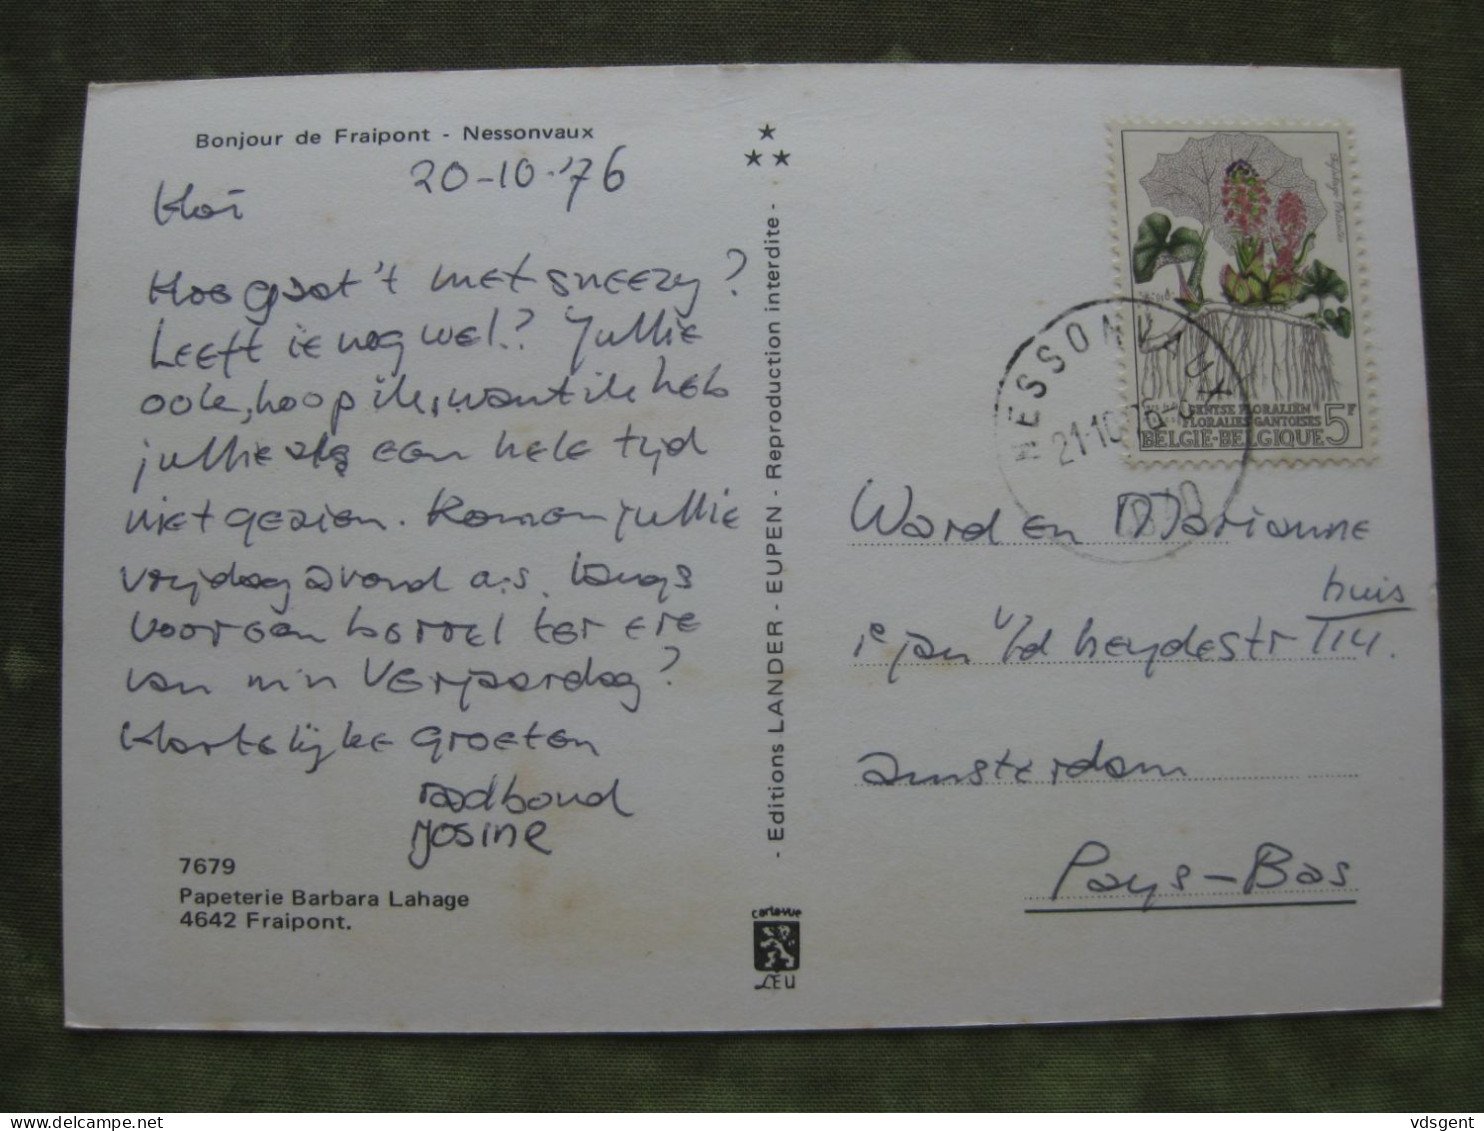 Bonjour de Fraipont - Nessonvaux
20-10-'76
Hoi
Hoe gaat 't met sneezy?
Leeft ie nog wel? Jullie
ook, hoop ik, want ik heb
jullie als een hele tijd
niet gezien. Komen jullie
vrijdagavond a.s. langs
voor een borrel ter ere
van m'n verjaardag?
Hartelijke groeten
radboud
Josine
7679
Papeterie Barbara Lahage
4642 Fraipont.
- Editions LANDER - EUPEN - Reproduction interdite -
cartovue
LEU
GENTSE FLORALIËN
FLORALIES GANTOISES
BELGIË-BELGIQUE 5F
NESSONVAUX
21-10-76
Ward en Marianne
huis
p jan v/d heydestr 114.
amsterdam
Pays-Bas
vdsgent